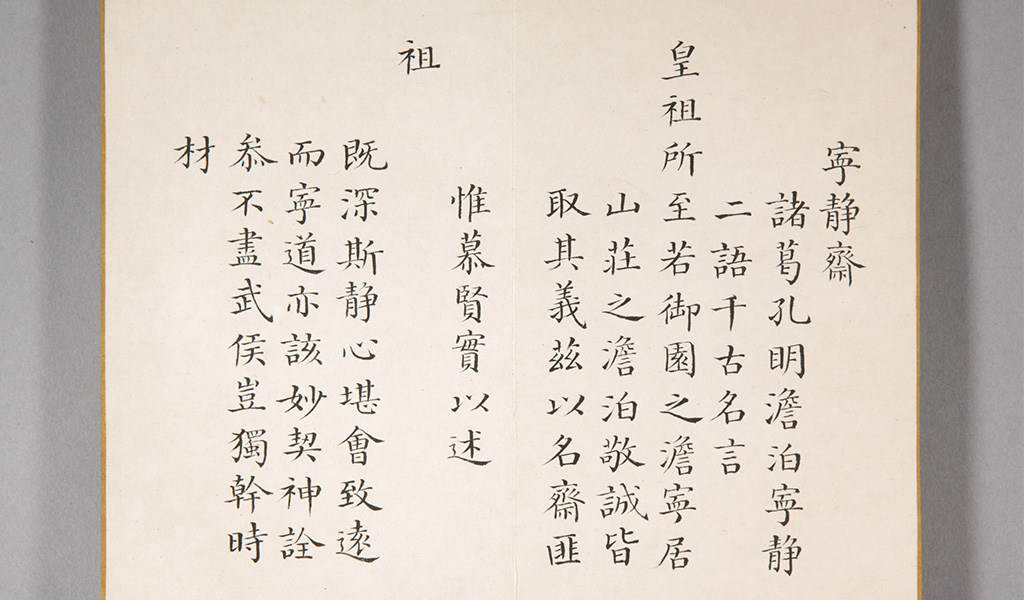 寧静齋
諸葛孔明澹泊寧静
二語千古名言
皇祖所至若御園之澹寧居
山莊之澹泊敬誠皆
取其義茲以名齋匪
惟慕賢實以述
祖
既深斯静心堪會致遠
而寧道亦該妙契神詮
叅不盡武侯豈獨幹時
材